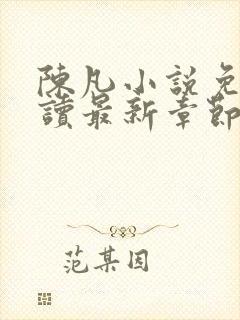 陳凡小說免
讀最新章節
范某因